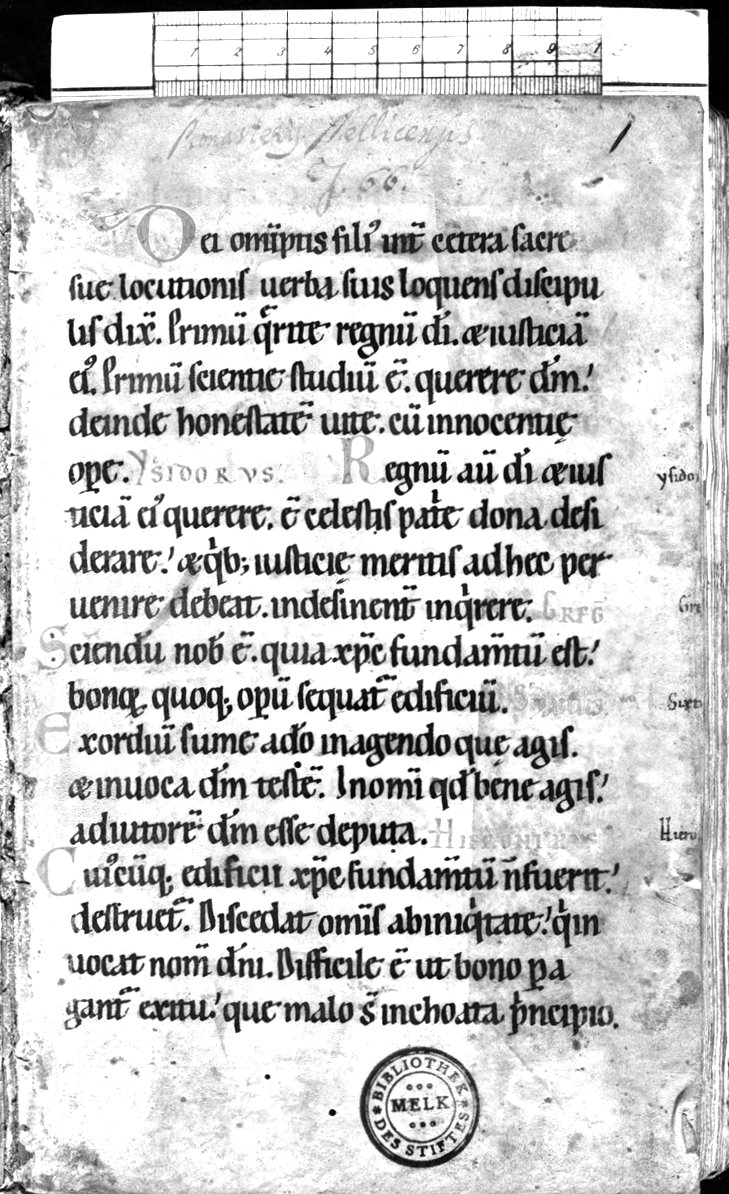 1 2 3 4 5 6 7 8 9 1
Monasterij Mellicensis
J. 66.
1
Dei omīptis filiꝰ int̄ cetera sacre
sue locutionis uerba suis loquens discipu
lis dix̄. Primū q̄rite regnū dī. & iusticiā
eiꝰ. Primū scientie studiū ē. querere dm̄.
deinde honestatē uite. cū innocentię
ope. Ysidorvs. Regnū aū dī & ius ysidor
ticiā eiꝰ querere. ē celestis patͥe dona desi
derare. & qͥbꝫ iusticię meritis ad hec per
uenire debeat. indesinent̄ inqͥrere. Grēḡ Gre
Sciendū nob̄ ē. quia xp̄c fundam̄tū est.
bonoꝝ quoqꝫ opū sequat̄ edificiū. Sixtus Sixtu
Exordiū sume a dō in agendo que agis.
& inuoca dm̄ testē. In omī qđ bene agis.
adiutorē dm̄ esse deputa. Hieronimvs Hiero
Cuiꝰcūqꝫ edificii xp̄c fundam̄tū n̄ fuerit.
destruet̄. Discedat omīs ab iniqͥtate. qͥ in
uocat nom̄ dn̄i. Difficile ē ut bono pa
gant̄ exitu. que malo s̄ inchoata pͥncipio.
BIBLIOTHEK
MELK
DES STIFTES